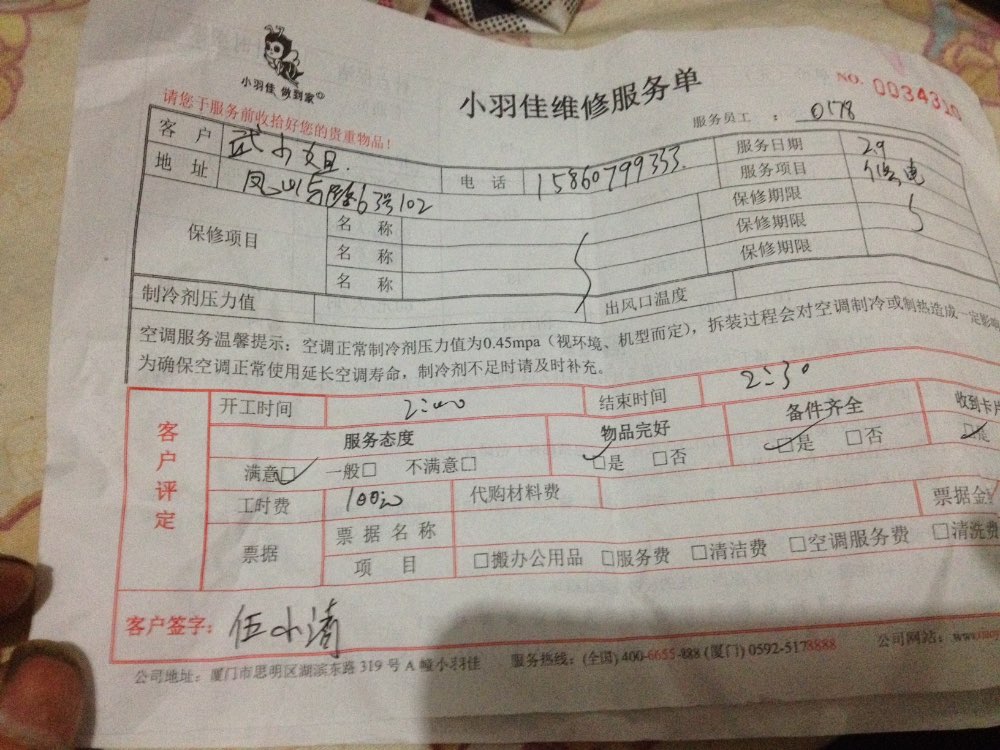 小羽佳 做到家
小羽佳维修服务单
NO. 0034310
请您于服务前收拾好您的贵重物品!
服务员工 : 0178
客 户 武小姐 电 话 15860799333 服务日期 29
地 址 63号102 服务项目
保修项目 名 称 保修期限
名 称 保修期限
名 称 保修期限
制冷剂压力值 出风口温度
空调服务温馨提示：空调正常制冷剂压力值为0.45mpa（视环境、机型而定），拆装过程会对空调制冷或制热造成一定影
为确保空调正常使用延长空调寿命，制冷剂不足时请及时补充。
客户评定
开工时间 2:00 结束时间 2:30
服务态度 物品完好 备件齐全 收到卡片
满意□ 一般□ 不满意□ □是 □否 □是 □否 □是
工时费 100元 代购材料费 票据金
票据 票 据 名 称
项 目 □搬办公用品 □服务费 □清洁费 □空调服务费 □清洗费
客户签字： 伍小清
公司地址：厦门市思明区湖滨东路 319 号 A 幢小羽佳 服务热线：(全国) 400-6655-888 (厦门) 0592-5178888 公司网站：www